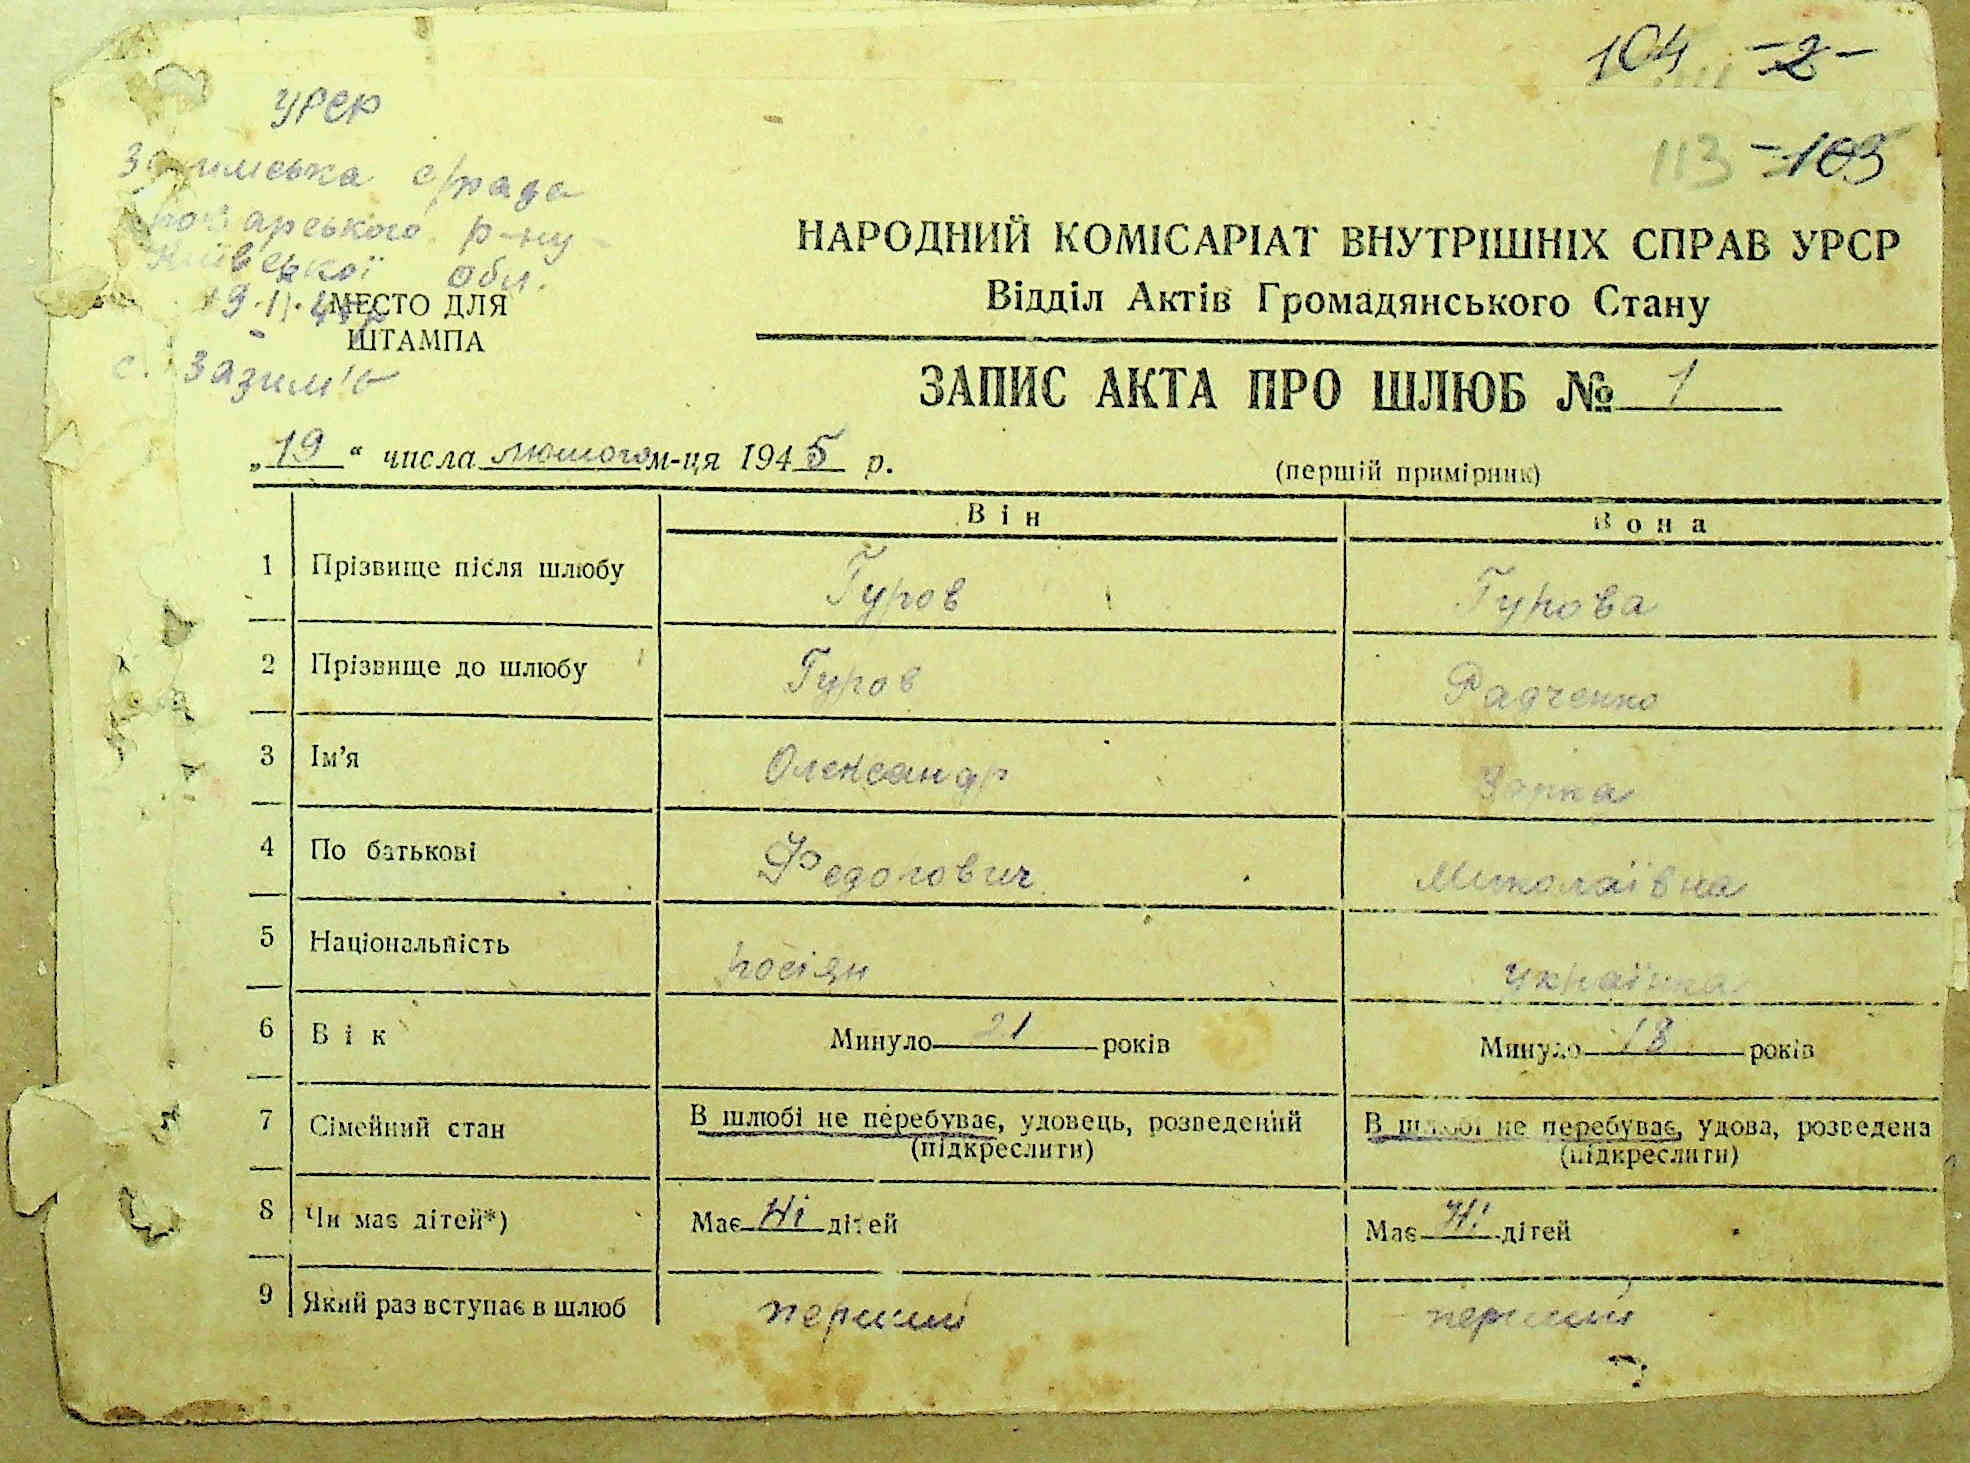 104 -2-
113 -103
УРСР
Зазимська с/рада
Броварського р-ну
Київської обл.
19.II.45 р
МЕСТО ДЛЯ
ШТАМПА
с. Зазим'є
НАРОДНИЙ КОМІСАРІАТ ВНУТРІШНІХ СПРАВ УРСР
Відділ Актів Громадянського Стану
ЗАПИС АКТА ПРО ШЛЮБ № 1
„19“ числа лютого м-ця 1945 р.
(першій примірник)
Він Вона
1 Прізвище після шлюбу Гуров Гурова
2 Прізвище до шлюбу Гуров Радченко
3 Ім'я Олександр
4 По батькові Федорович Миколаївна
5 Національність росіян українка
6 Вік Минуло 21 років Минуло 18 років
7 Сімейний стан В шлюбі не перебуває, удовець, розведений В шлюбі не перебуває, удова, розведена
(підкреслити) (підкреслити)
8 Чи має дітей*) Має Ні дітей Має Ні дітей
9 Який раз вступає в шлюб перший перший